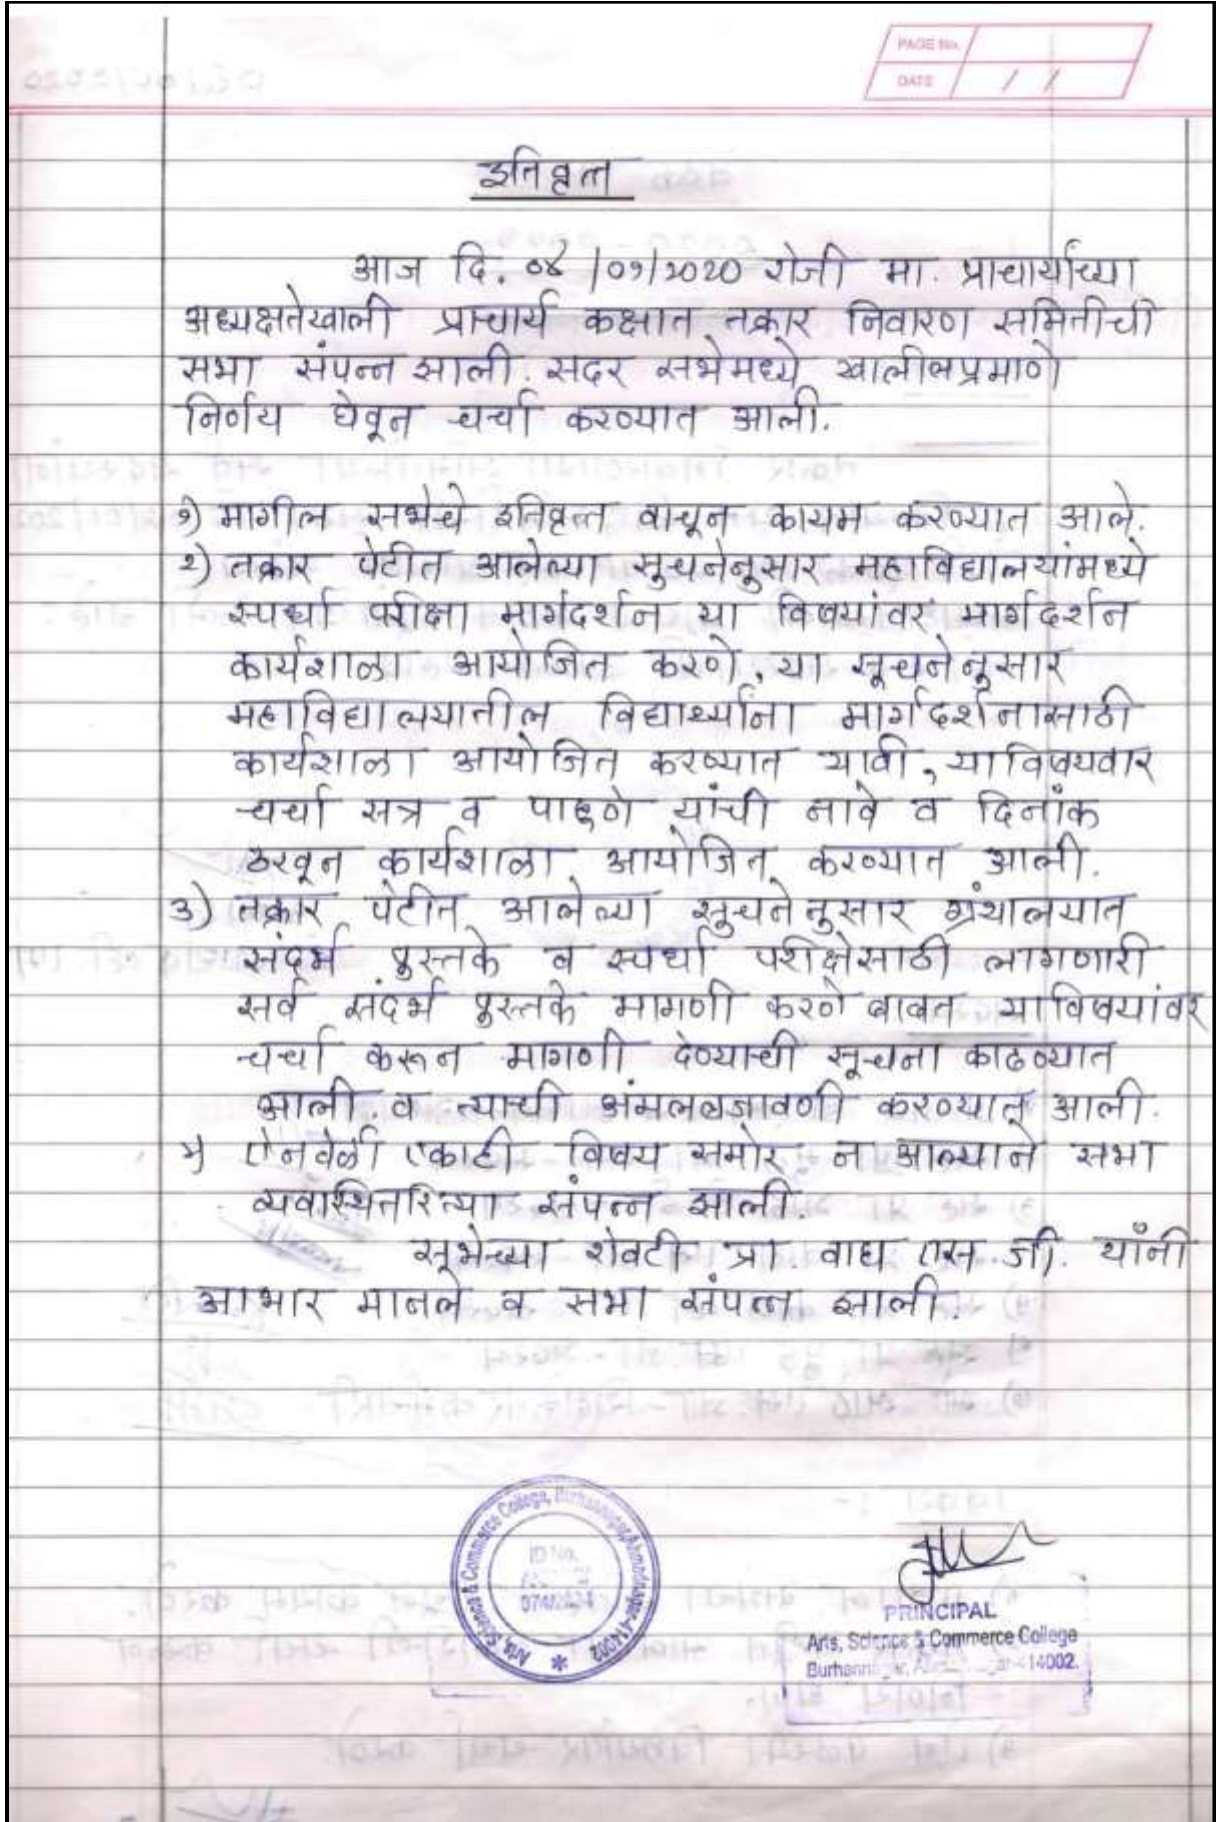 PAGE No.
DATE / /
इतिवृत्त
आज दि. ०४/०१/२०२० रोजी मा. प्राचार्यांच्या
अध्यक्षतेखाली प्राचार्य कक्षात तक्रार निवारण समितीची
सभा संपन्न झाली. सदर सभेमध्ये खालीलप्रमाणे
निर्णय घेवून चर्चा करण्यात आली.
१) मागील सभेचे इतिवृत्त वाचून कायम करण्यात आले.
२) तक्रार पेटीत आलेल्या सुचनेनुसार महाविद्यालयांमध्ये
स्पर्धा परीक्षा मार्गदर्शन या विषयांवर मार्गदर्शन
कार्यशाळा आयोजित करणे, या सूचनेनुसार
महाविद्यालयातील विद्यार्थ्यांना मार्गदर्शनासाठी
कार्यशाळा आयोजित करण्यात यावी, याविषयवार
चर्चा सत्र व पाहुणे यांची नावे व दिनांक
ठरवून कार्यशाळा आयोजित करण्यात आली.
३) तक्रार पेटीत आलेल्या सुचनेनुसार ग्रंथालयात
संदर्भ पुस्तके व स्पर्धा परीक्षेसाठी लागणारी
सर्व संदर्भ पुस्तके मागणी करणे बाबत याविषयांवर
चर्चा करून मागणी देण्याची सूचना काढण्यात
आली. व त्याची अंमलबजावणी करण्यात आली.
४) ऐनवेळी एकाही विषय समोर न आल्याने सभा
व्यवास्थितरित्या संपन्न झाली.
सभेच्या शेवटी प्रा वाघ एस. जी. यांनी
आभार मानले व सभा संपन्न झाली.
Arts, Science & Commerce College, Burhannagar, Ahmednagar-414002
ID No.
PRINCIPAL
Arts, Science & Commerce College
414002.